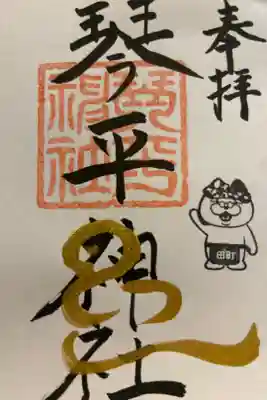 奉拝
琴平神社
琴平神社
田町